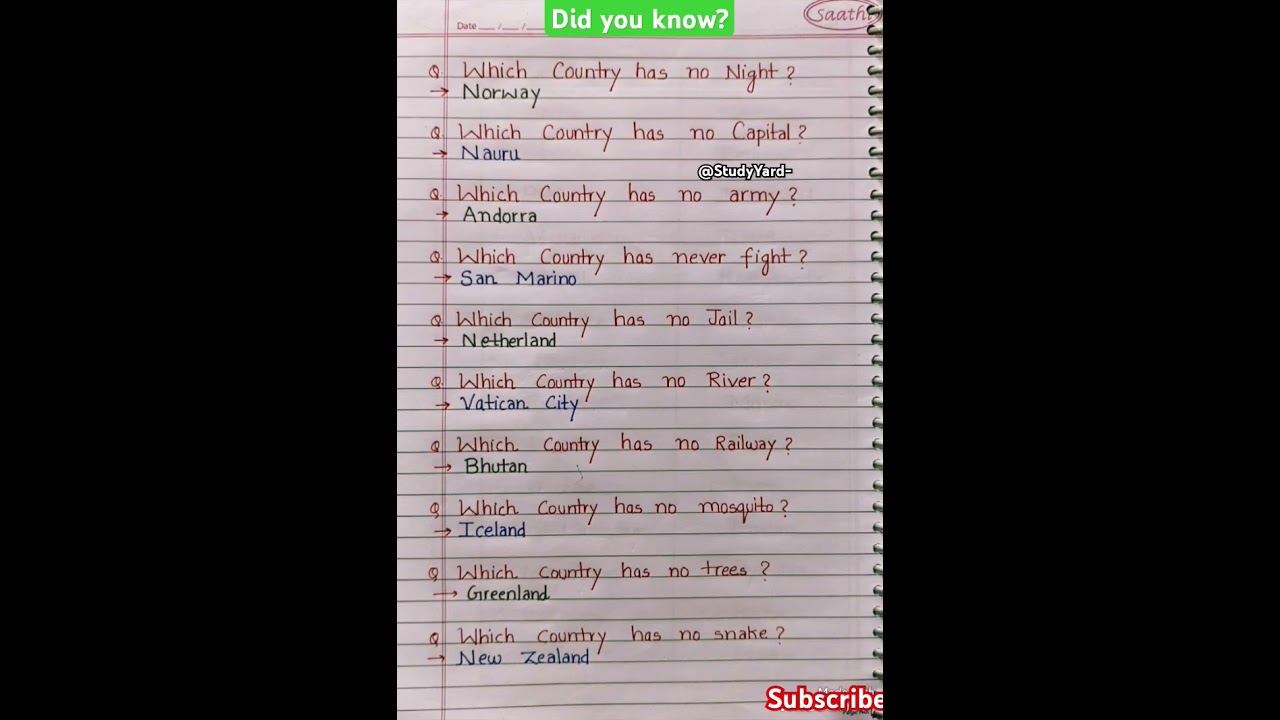 Did you know?
Saathi
Date __/__/__
Q. Which Country has no Night?
→ Norway
Q. Which Country has no Capital?
→ Nauru
@StudyYard-
Q. Which Country has no army?
→ Andorra
Q. Which Country has never fight?
→ San Marino
Q. Which Country has no Jail?
→ Netherland
Q. Which Country has no River?
→ Vatican City
Q. Which Country has no Railway?
→ Bhutan
Q. Which Country has no mosquito?
→ Iceland
Q. Which Country has no trees?
→ Greenland
Q. Which Country has no snake?
→ New Zealand
Subscribe